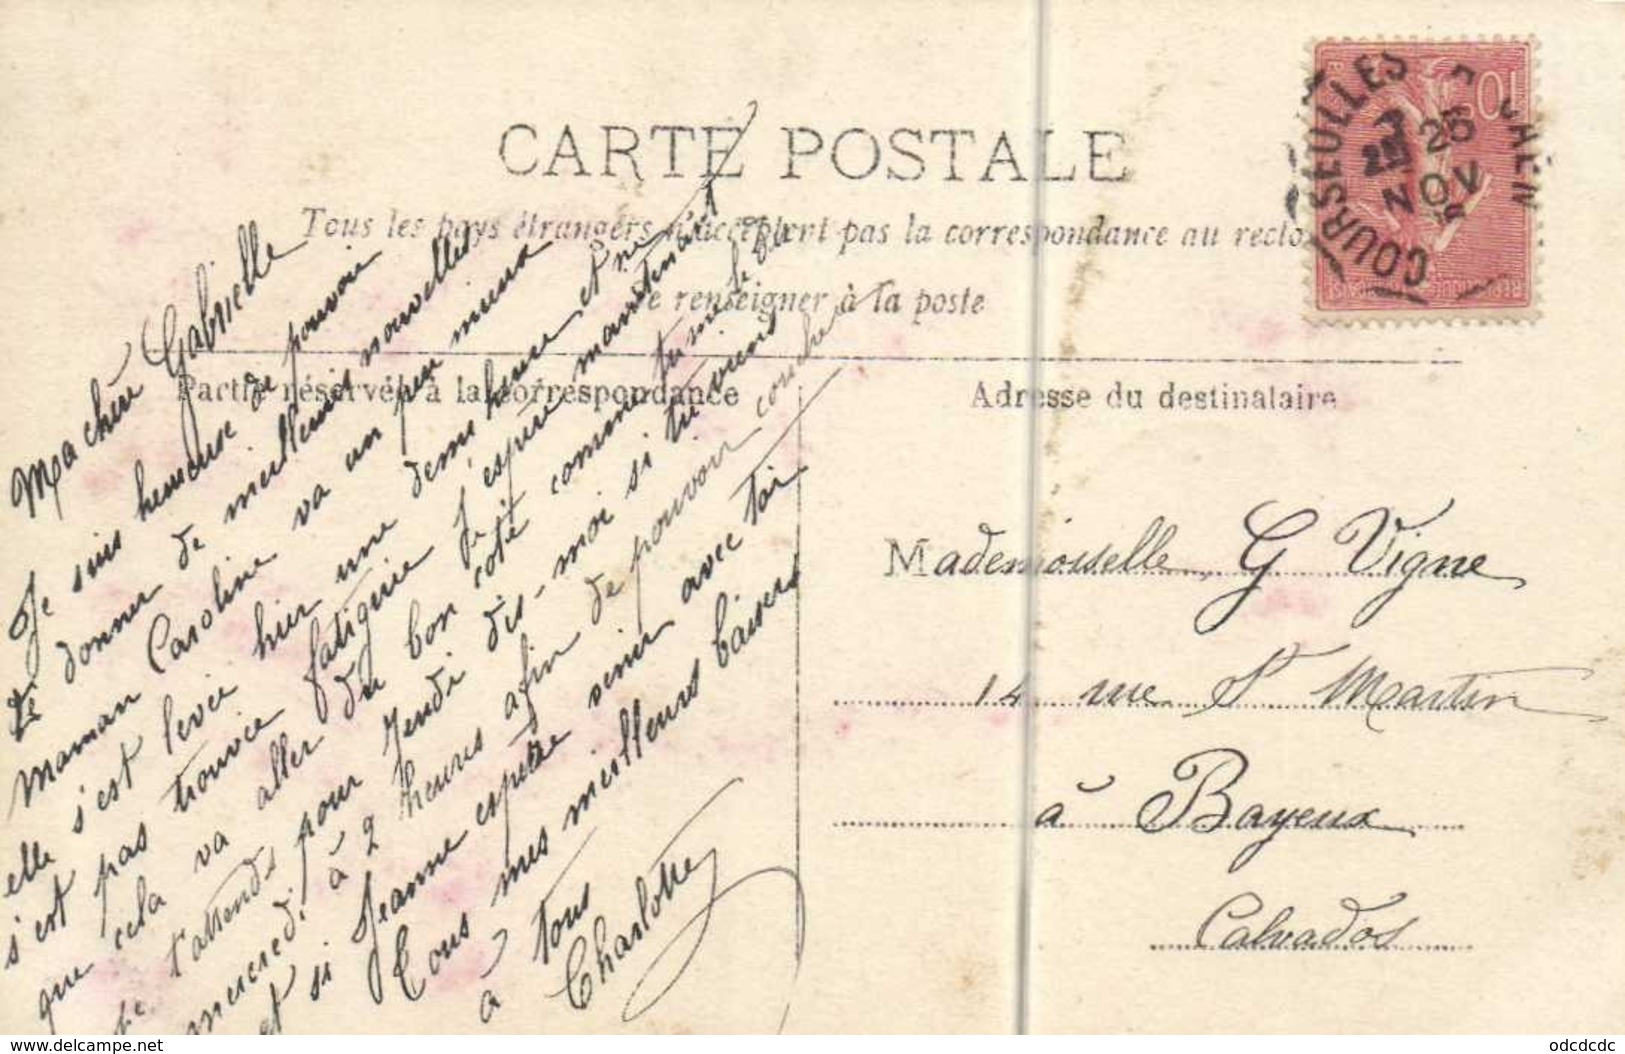 CARTE POSTALE
Tous les pays étrangers n'acceptent pas la correspondance au recto
Se renseigner à la poste
Partie réservée à la correspondance
Adresse du destinataire
COURSEULLES CAEN
26
NOV
10
Ma chère Gabrielle
Je suis heureuse de pouvoir
te donner de meilleures nouvelles
Maman Caroline va un peu mieux
elle s'est levée hier une demi heure et ne
s'est pas trouvée fatiguée J'espère maintenant
que cela va aller du bon coté comme tu me le dis
Je t'attends pour Jeudi dis-moi si tu viens
mercredi à 2 heures afin de pouvoir coucher
et si Jeanne espère venir avec toi
Tous mes meilleurs baisers
à tous
Charlotte
Mademoiselle G Vigne
14 rue St Martin
à Bayeux
Calvados
www.delcampe.net
odcdcdc